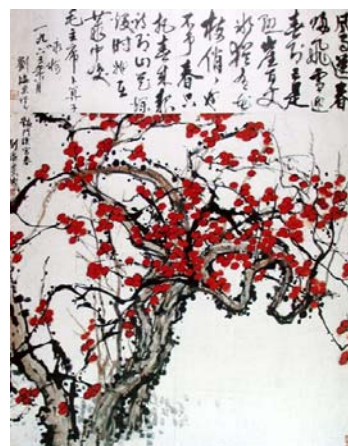 風雨送春
歸飛雪迎
春到已是
懸崖百丈
冰猶有花
枝俏也
不争春只
把春来報
待到山花爛
漫時她在
叢中笑
毛主席卜算子
咏梅
一九六三年月
劉海粟